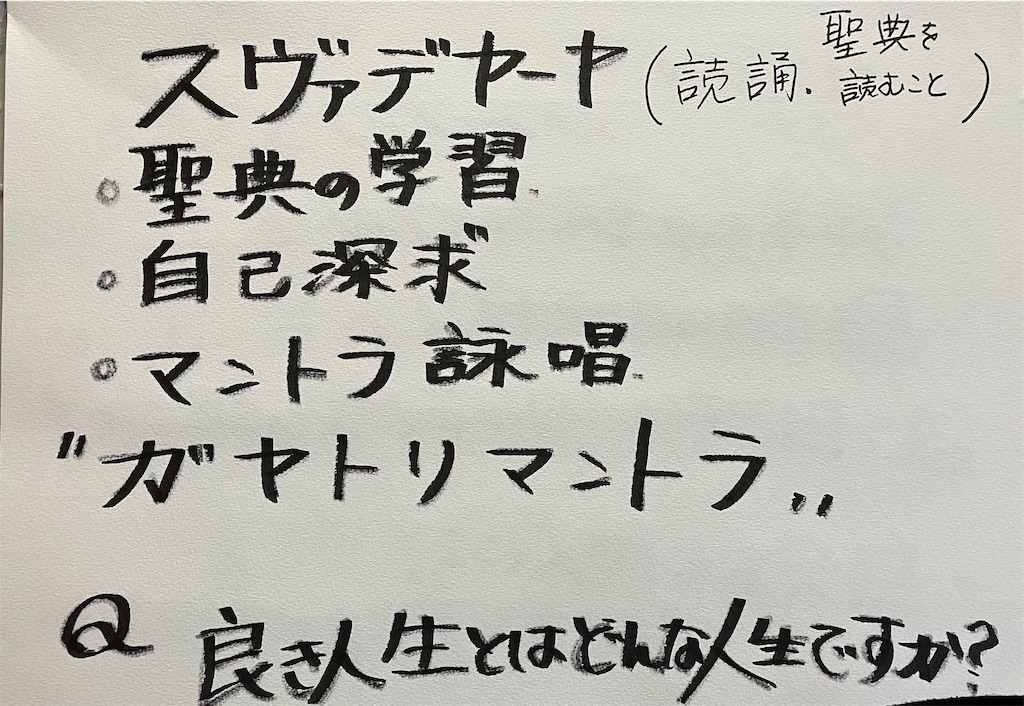 スヴァデヤーヤ(読誦.聖典を読むこと)
◦聖典の学習
◦自己深求
◦マントラ詠唱
"ガヤトリマントラ"
Q 良き人生とはどんな人生ですか?